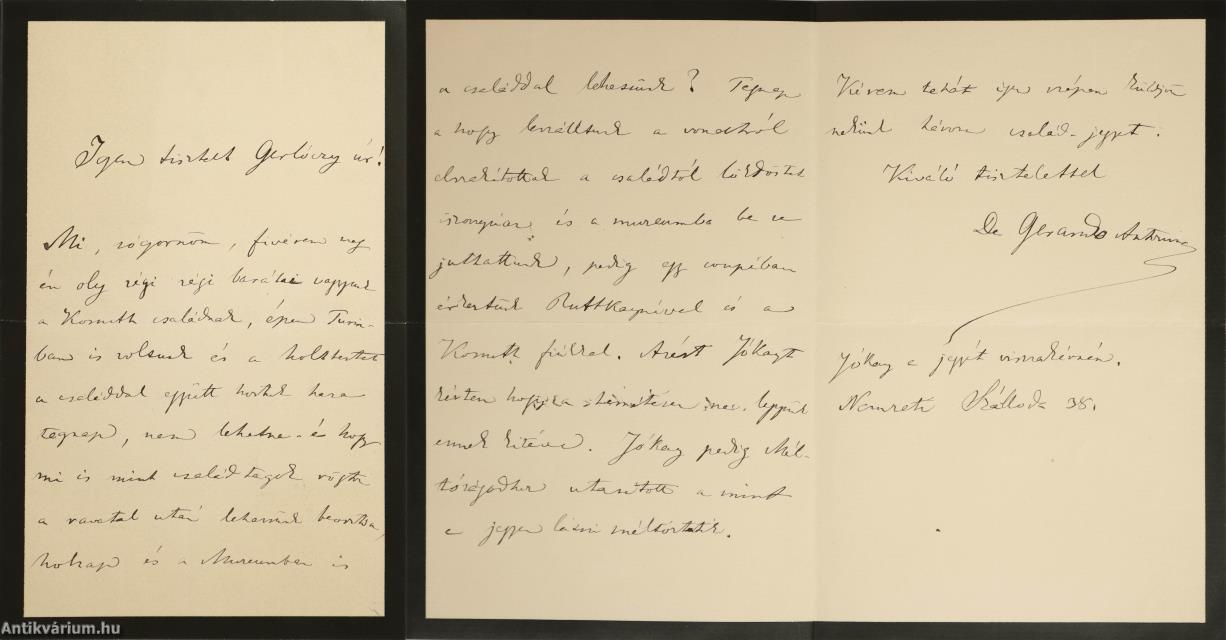 Igen tisztelt Gerlóczy úr!
Mi, sógornőm, fivérem meg
én oly régi régi barátai vagyunk
a Kossuth családnak, épen Turin-
ban is voltunk és a holttestet
a családdal együtt hoztuk haza
tegnap, nem lehetne-é hogy
mi is mint családtagok rögtön
a ravatal után lehessünk beosztva,
holnap és a Museumban is
a családdal lehessünk? Tegnap
a hogy leszálltunk a vonatról
elszakítottak a családtól lökdöstek
iszonyúan és a museumba be se
juthattunk, pedig egy coupéban
érkeztünk Ruttkaynéval és a
Kossuth fiúkkal. Azért Jókayt
kértem hogy a temetésen ne legyünk
ennek kitéve. Jókay pedig Mél-
tóságodhoz utasított a mint
e jegyen látni méltóztatik.
Kérem tehát igen szépen küldjön
nekünk három család-jegyet.
Kiváló tisztelettel
De Gerando Antonina
Jókay e jegyét visszakérném.
Nemzeti Szálloda 38.
Antikvárium.hu